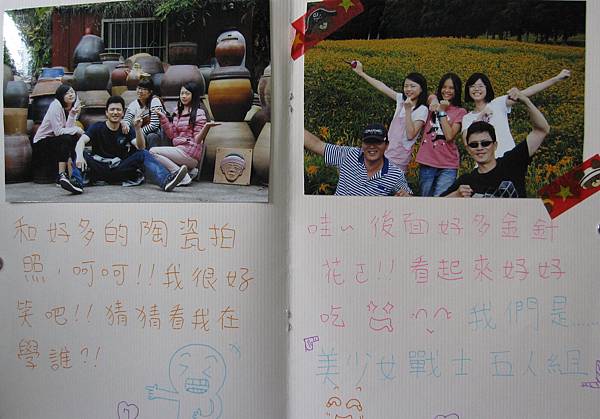 和好多的陶瓷拍
照,呵呵!!我很好
笑吧!!猜猜看我在
學誰?!
哇~後面好多金針
花ㄛ!!看起來好好
吃 我們是......
美少女戰士五人組